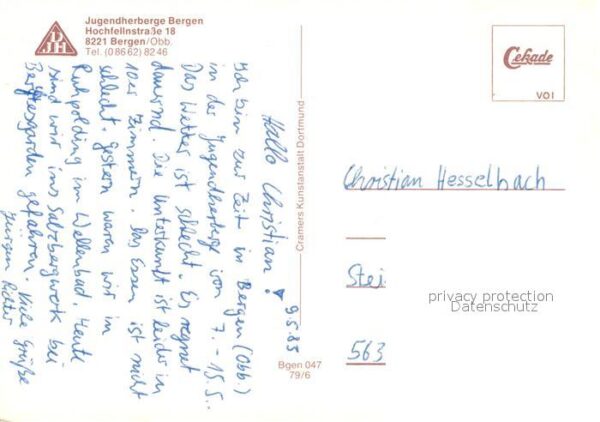 DJH
Jugendherberge Bergen
Hochfellnstraße 18
8221 Bergen/Obb.
Tel. (0 86 62) 82 46
9.5.85
Hallo Christian!
Ich bin zur Zeit in Bergen (Obb.)
in der Jugendherberge vom 7.-15.5..
Das Wetter ist schlecht. Es regnet
dauernd. Die Unterkunft ist leider in
10er Zimmern. Das Essen ist nicht
schlecht. Gestern waren wir in
Ruhpolding im Wellenbad. Heute
sind wir ins Salzbergwerk bei
Berchtesgarden gefahren. Viele Grüße
Jürgen
Cramers Kunstanstalt Dortmund
Bgen 047
79/6
Cekade
VO I
Christian Hesselbach
Stei
privacy protection
Datenschutz
563